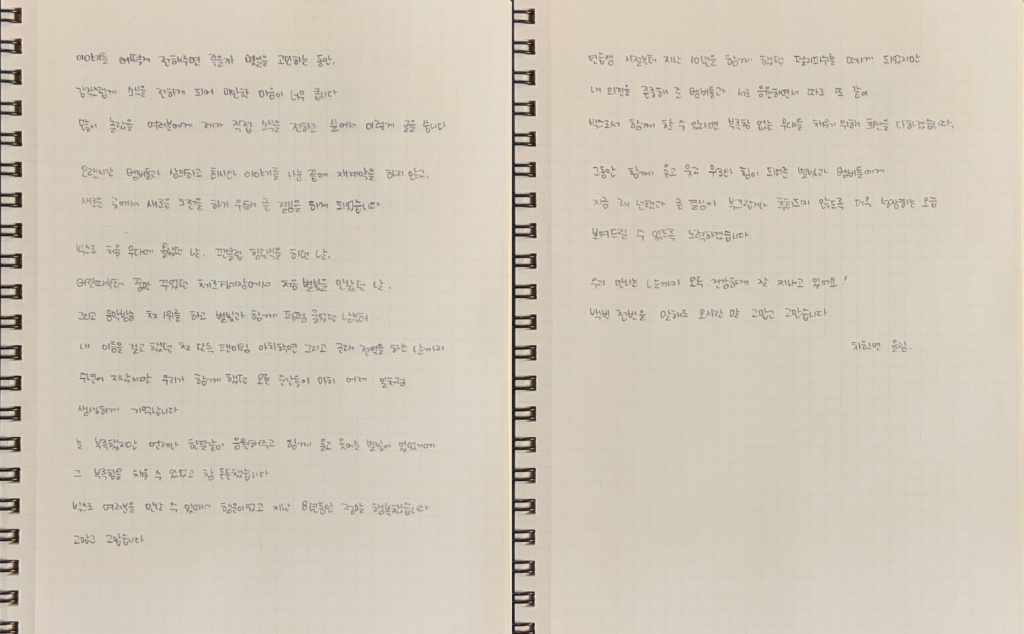 이야기를 어떻게 전해주면 좋을까 몇일을 고민하는 동안,
갑작스럽게 소식을 전하게 되어 미안한 마음이 너무 큽니다
많이 놀랐을 여러분에게 제가 직접 소식을 전하고 싶어서 이렇게 글을 씁니다
오랜시간 멤버들과 상의하고 회사와 이야기를 나눈 끝에 재계약을 하지 않고,
새로운 곳에서 새로운 도전을 하기 위해 큰 결심을 하게 되었습니다.
빅스로 처음 무대에 올랐던 날. 팬클럽 창단식을 하던 날,
어린때부터 꿈만 꾸었던 체조경기장에서 처음 별빛을 만났던 날.
그리고 음악방송 첫 1위를 하고 별빛과 함께 펑펑 울었던 날부터
내 이름을 걸고 했었던 첫 단독 팬미팅 아취학연 그리고 군대 전역을 하는 날까지
수년이 지났지만 우리가 함께 했던 모든 순간들이 마치 어제 일처럼
생생하게 기억납니다
늘 부족했지만 언제나 한결같이 응원해주고 함께 울고 웃어준 별빛이 있었기에
그 부족함을 채울 수 있었고 참 든든했습니다
빅스로 여러분을 만날 수 있어서 행운이었고 지난 8년동안 정말 행복했습니다
고맙고 고맙습니다
연습생 시절부터 지난 10년을 함께 했던 젤리피쉬를 떠나게 되었지만
내 의견을 존중해 준 멤버들과 서로 응원하면서 따로 또 같이.
빅스로서 함께 할 수 있다면 부족함 없는 무대를 채우기 위해 최선을 다하겠습니다.
그동안 함께 울고 웃고 위로와 힘이 되어준 별빛과 멤버들에게
지금 제 선택과 큰 결심이 부끄럽거나 후회되지 않도록 더욱 성장하는 모습
보여드릴 수 있도록 노력하겠습니다.
우리 만나는 날까지 모두 건강하게 잘 지내고 있어요!
백번 천번을 말해도 모자랄 만큼 고맙고 고맙습니다
차학연 올림.